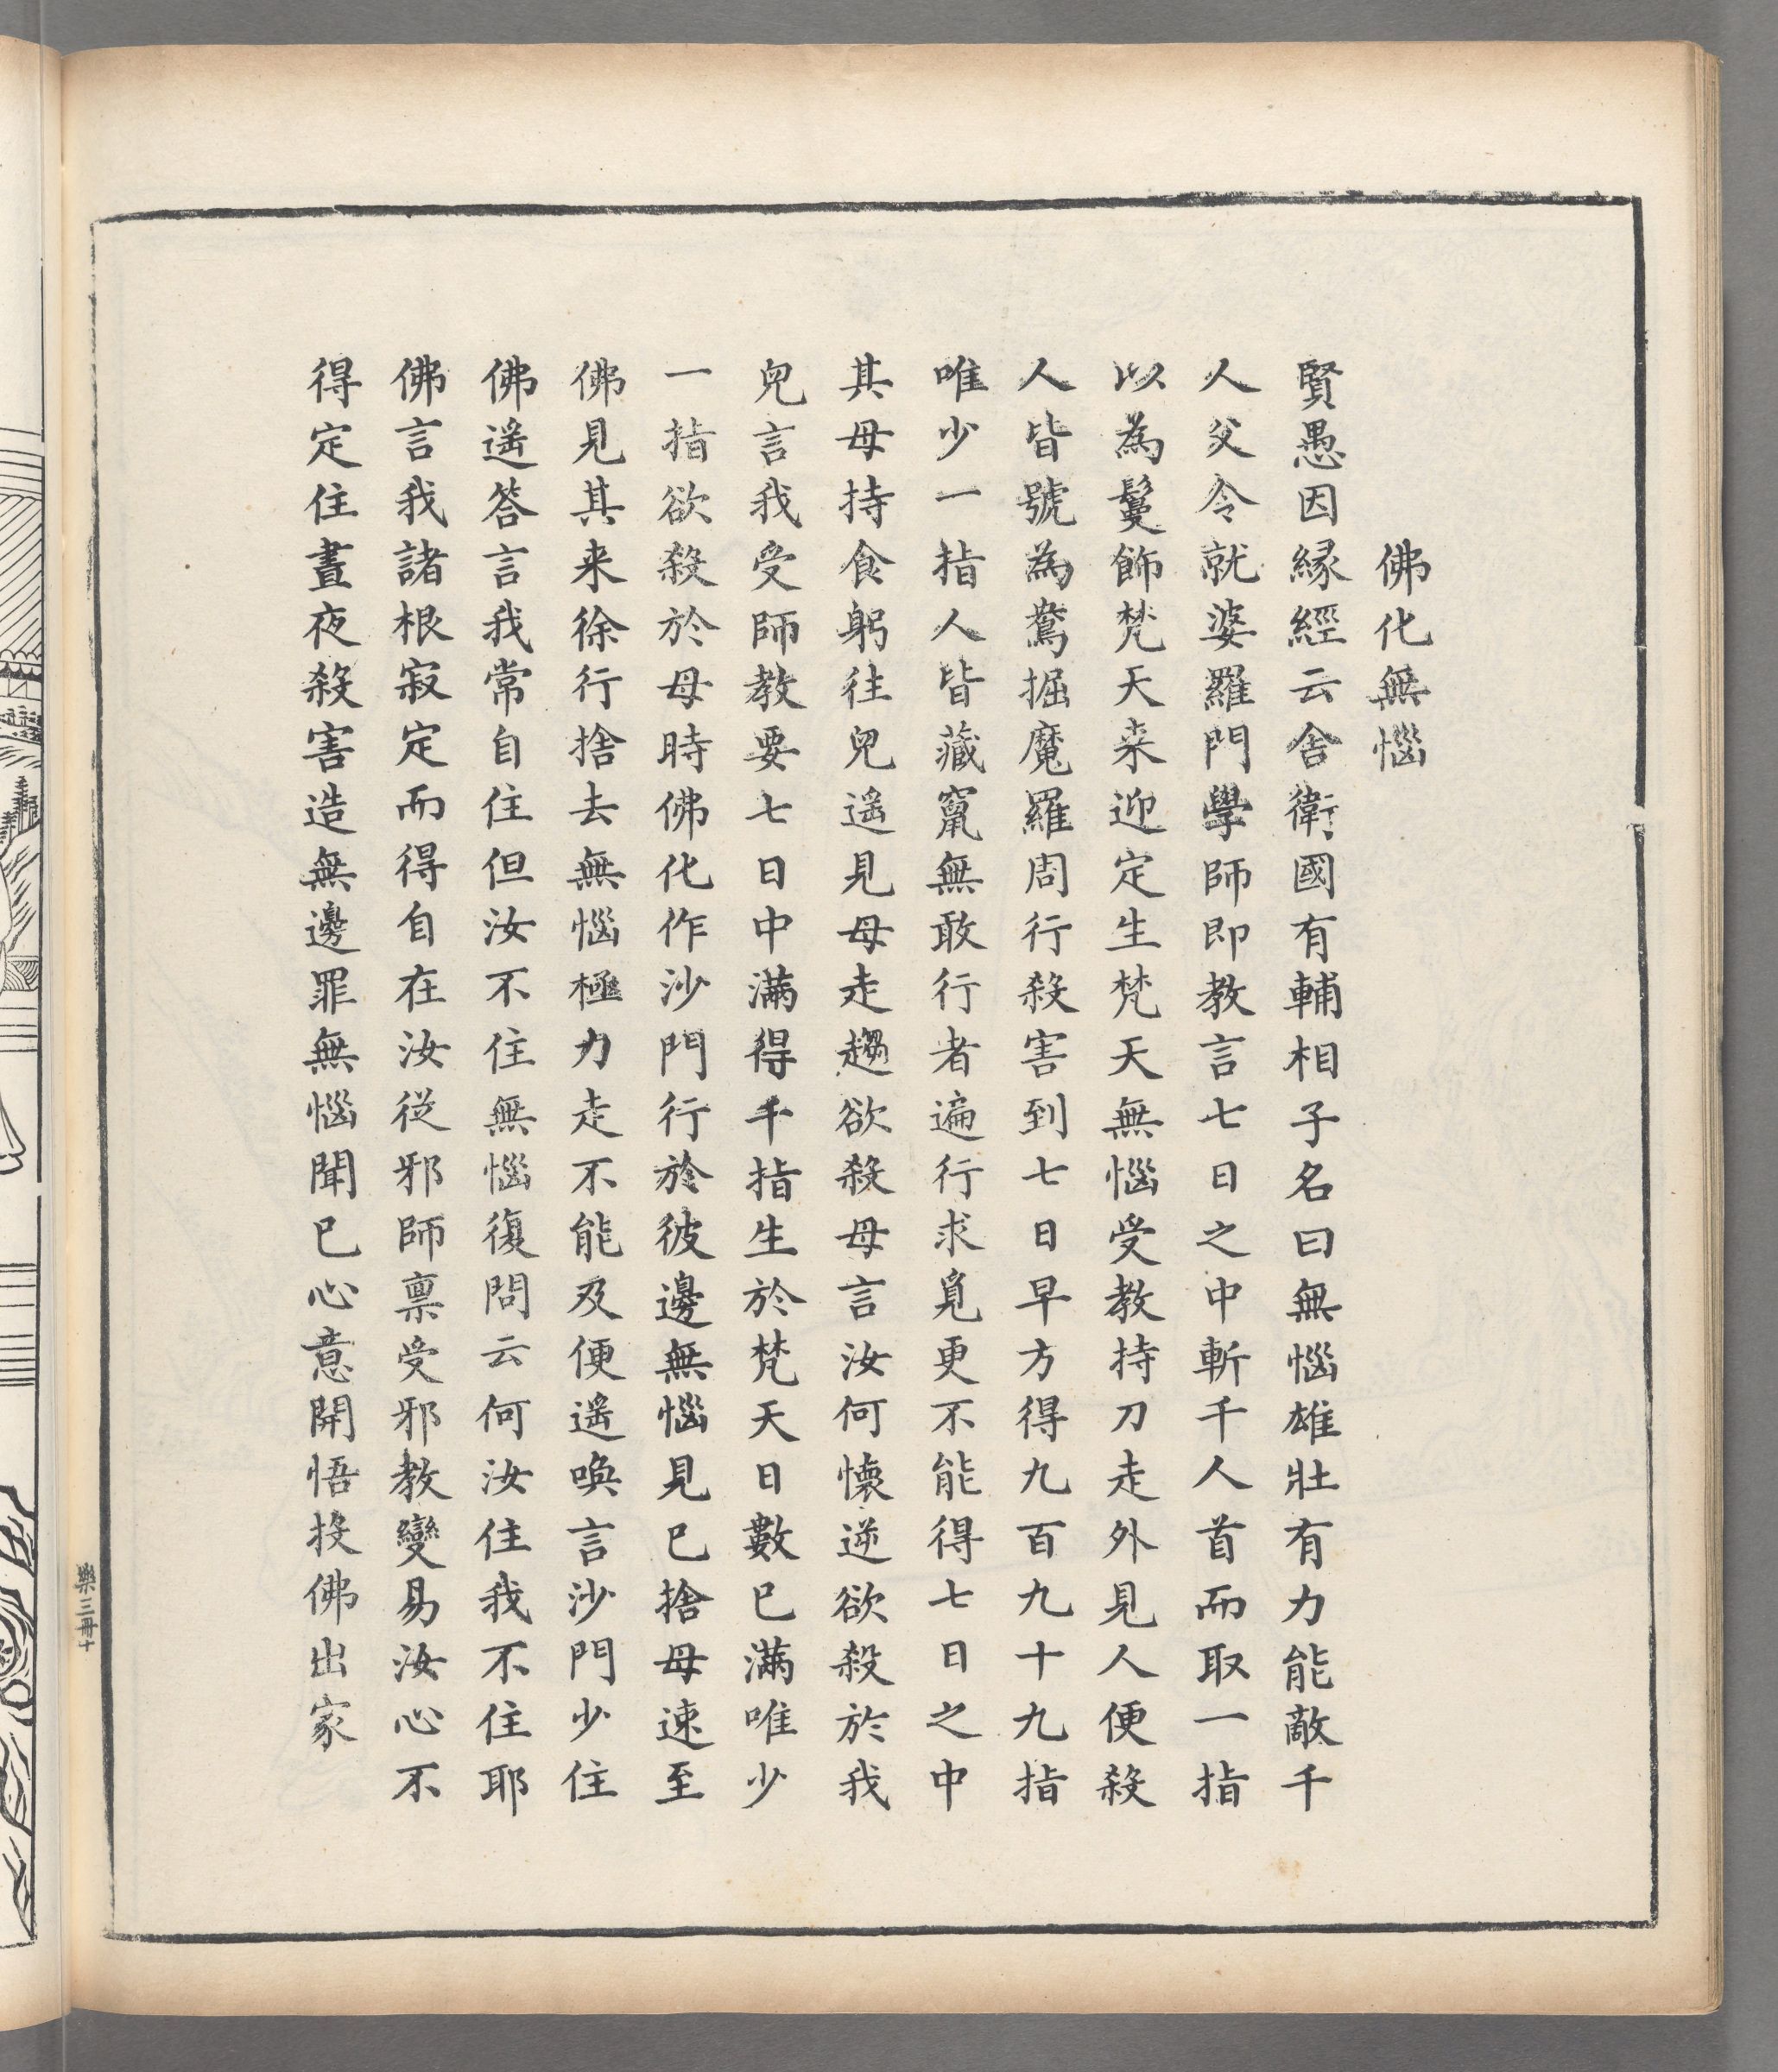 佛化無惱
賢愚因緣經云舍衛國有輔相子名曰無惱雄壯有力能敵千
人父令就婆羅門學師即教言七日之中斬千人首而取一指
以為鬘飾梵天来迎定生梵天無惱受教持刀走外見人便殺
人皆號為鴦掘魔羅周行殺害到七日早方得九百九十九指
唯少一指人皆藏竄無敢行者遍行求覓更不能得七日之中
其母持食躬往兒遥見母走趨欲殺母言汝何懷逆欲殺於我
兒言我受師教要七日中滿得千指生於梵天日數已滿唯少
一指欲殺於母時佛化作沙門行於彼邊無惱見已捨母速至
佛見其来徐行捨去無惱極力走不能及便遥喚言沙門少住
佛遥答言我常自住但汝不住無惱復問云何汝住我不住耶
佛言我諸根寂定而得自在汝從邪師禀受邪教變易汝心不
得定住晝夜殺害造無邊罪無惱聞已心意開悟投佛出家
樂三卌十